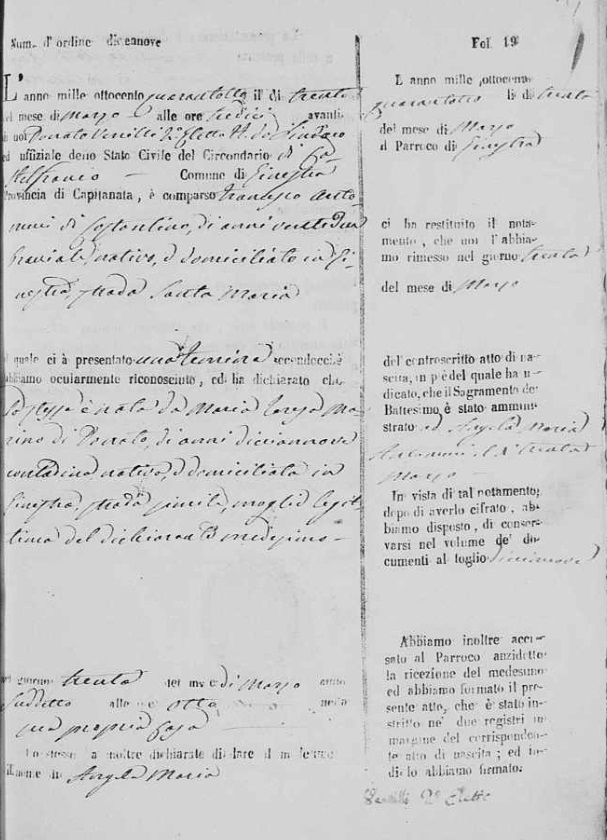 Num. d'ordine diecanove
L'anno mille ottocento quarantotto il dì trenta
del mese di Marzo alle ore sedici avanti
di noi Donato Verilli 2.° Eletto
ed uffiziale dello Stato Civile del Circondario di Ca-
stelfranco Comune di Ginestra
Provincia di Capitanata, è comparso Francesco Anto-
nini di Costantino, di anni ventidue
braciale, nativo, e domiciliato in Gi-
nestra, strada Santa Maria
il quale ci à presentato una femina secondocchè
abbiamo ocularmente riconosciuto, ed ha dichiarato che
la stessa è nata da Maria Teresa Ma-
rino di Donato, di anni diciannove
contadina, nativa, e domiciliata in
Ginestra, strada simile, moglie legit-
tima del dichiarante medesimo
nel giorno trenta del mese di Marzo anno
suddetto alle ore otto nella
sua propria casa
Lo stesso a inoltre dichiarato di dare il
il nome di Angela Maria
Fol. 19
L anno mille ottocento
quarantotto li dì trenta
del mese di Marzo
il Parroco di Ginestra
ci ha restituito il nota-
mento, che noi l'abbia-
mo rimesso nel giorno trenta
del mese di Marzo
del controscritto atto di na-
scita, in piè del quale ha in-
dicato, che il Sagramento del
Battesimo, è stato ammini-
strato ad Angela Maria
Antonini il dì trenta
Marzo
In vista di tal notamento;
dopo di averlo cifrato, ab-
biamo disposto, di conser-
varsi nel volume de' do-
cumenti al foglio diciannove
Abbiamo inoltre accu-
sato al Parroco anzidetto
la ricezione del medesimo
ed abbiamo formato il pre-
sente atto, che è stato in-
scritto ne' due registri in
margine del corrisponden-
te atto di nascita; ed in-
di lo abbiamo firmato.
Verilli 2° Eletto